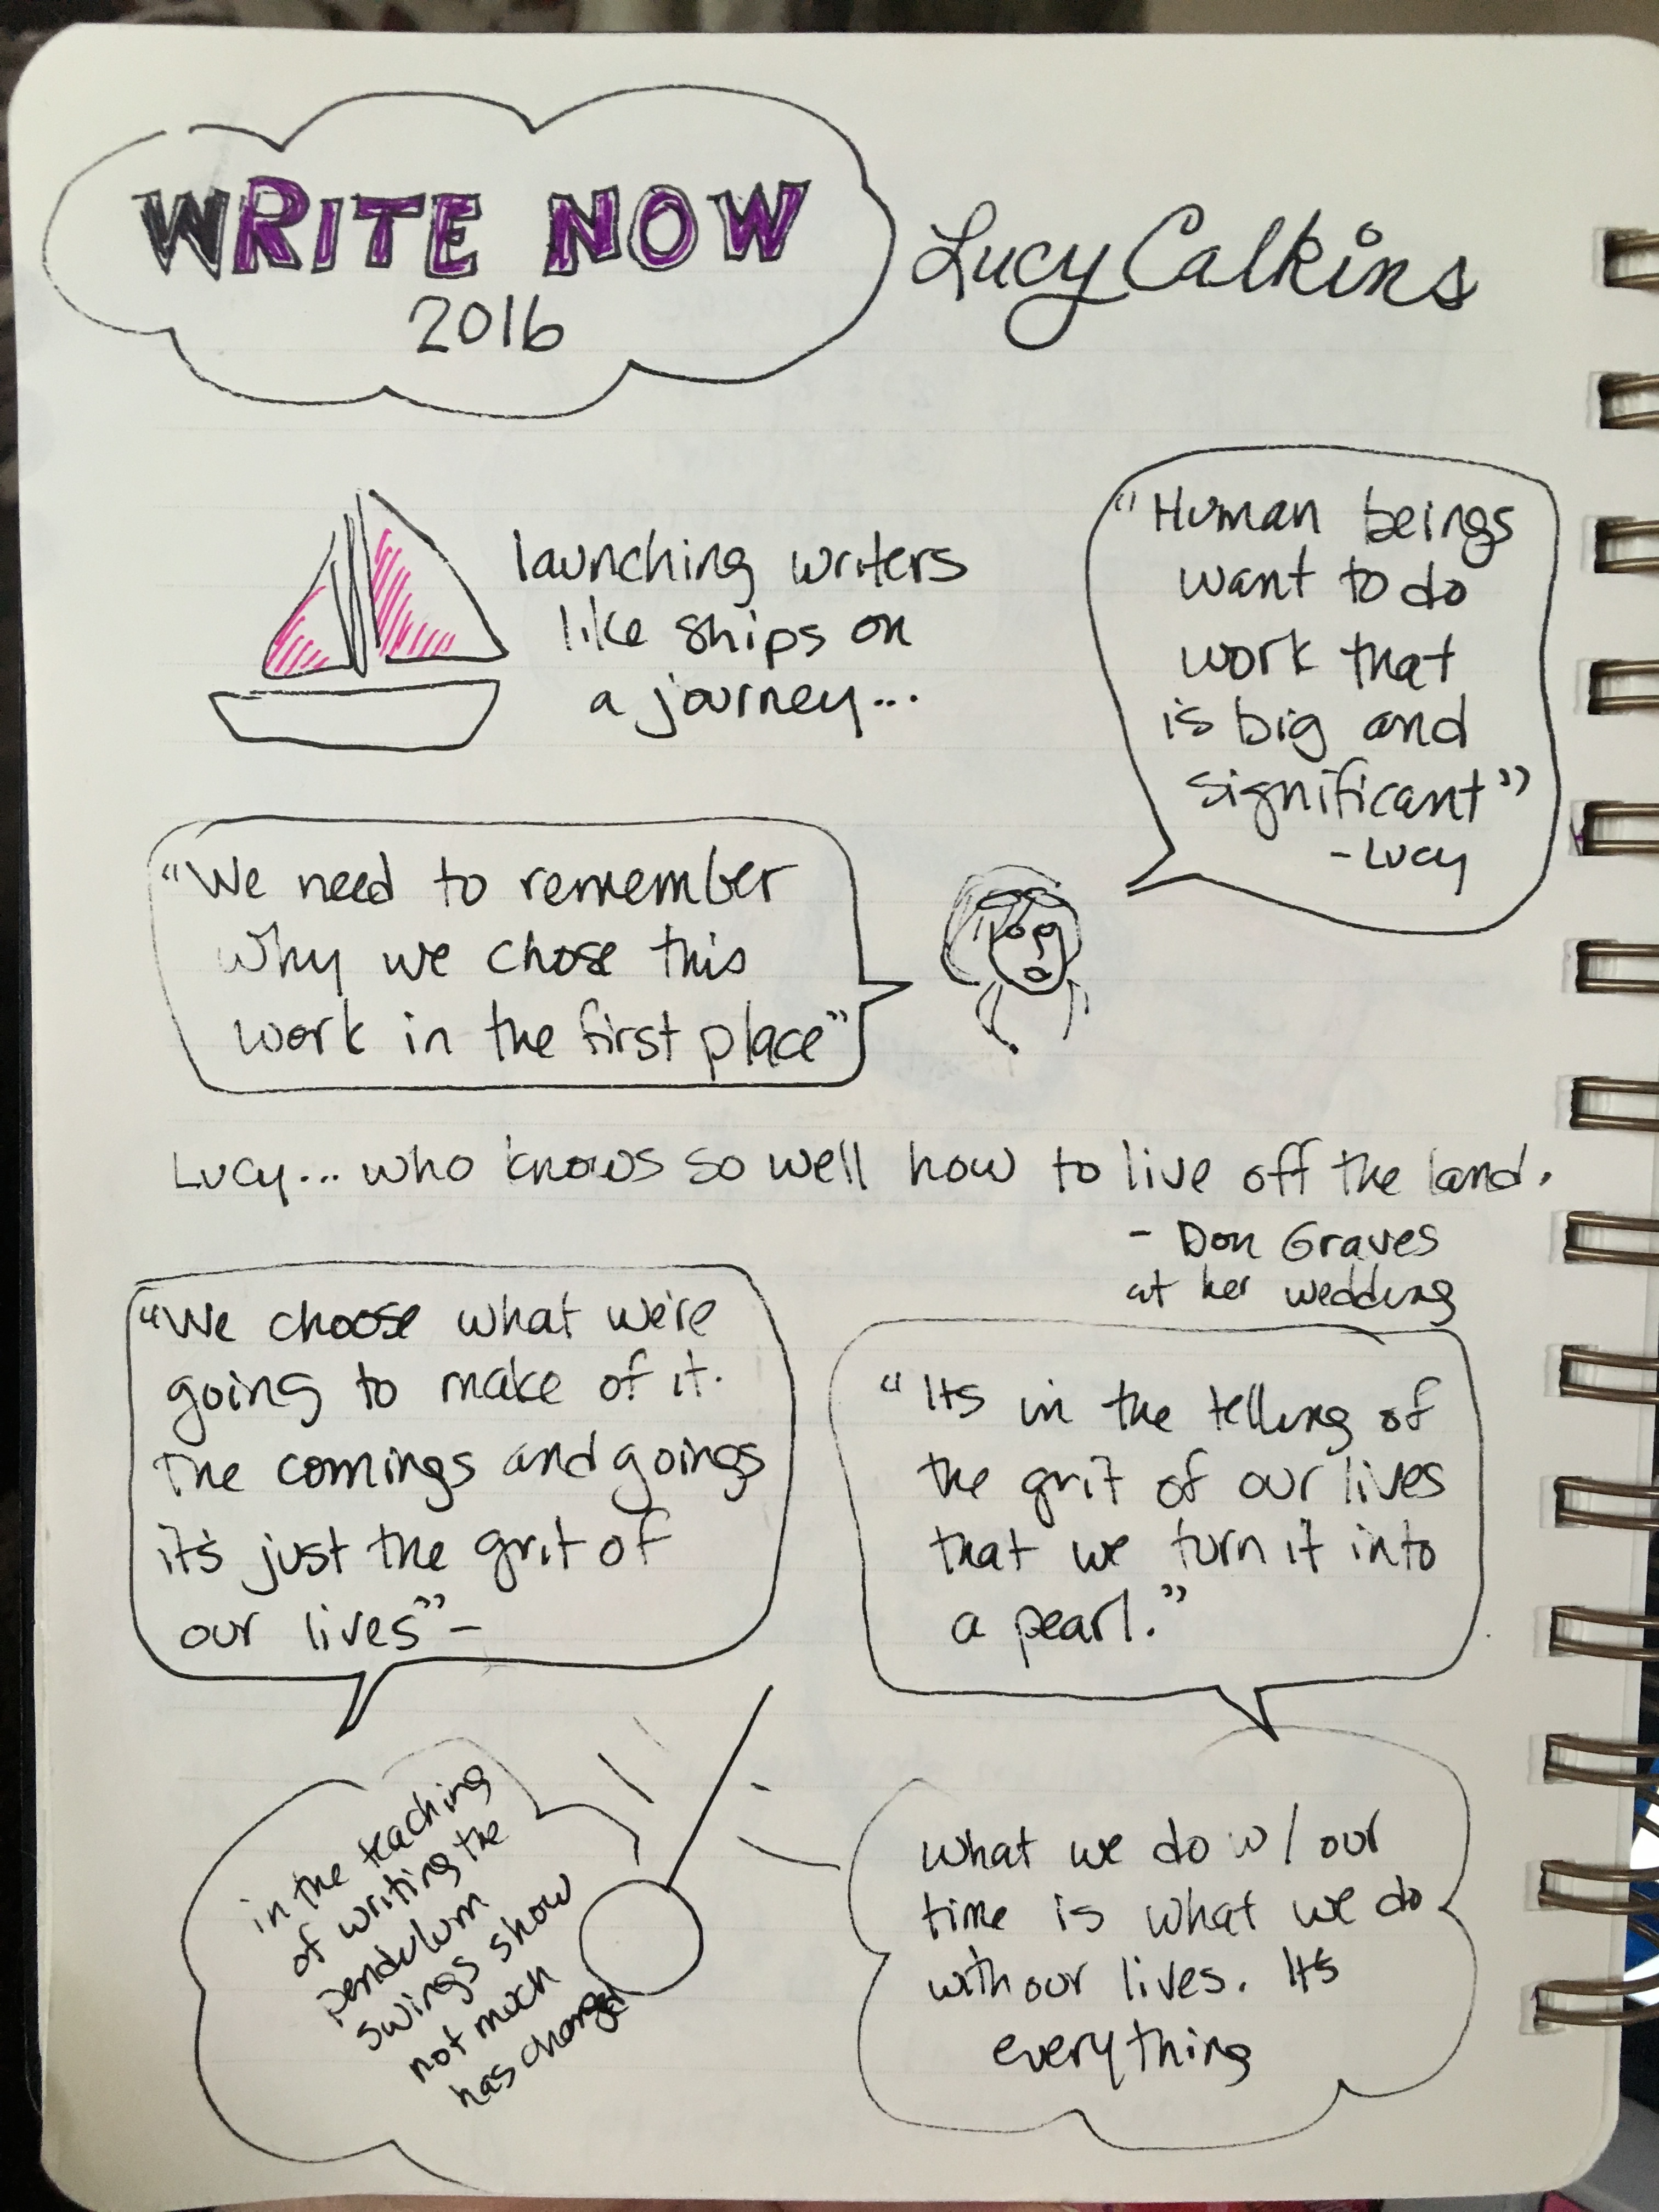 WRITE NOW
2016
Lucy Calkins
launching writers
like ships on
a journey...
"Human beings
want to do
work that
is big and
significant"
- Lucy
"We need to remember
why we chose this
work in the first place"
Lucy... who knows so well how to live off the land.
- Don Graves
at her wedding
"We choose what we're
going to make of it.
The comings and goings
it's just the grit of
our lives" -
"Its in the telling of
the grit of our lives
that we turn it into
a pearl."
in the teaching
of writing the
pendulum
swings show
not much
has changed
What we do w/ our
time is what we do
with our lives. Its
everything